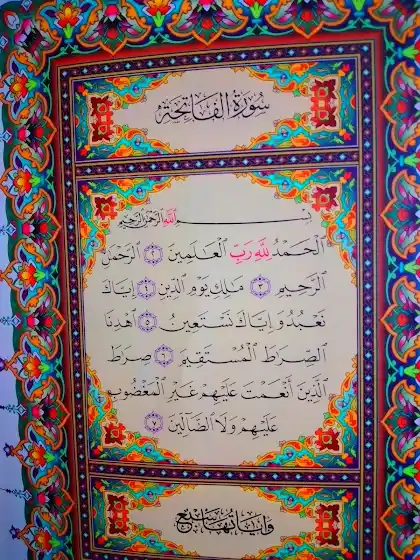 سُورَةُ الْفَاتِحَةِ
بِسْمِ ٱللَّهِ ٱلرَّحْمَٰنِ ٱلرَّحِيمِ
ٱلْحَمْدُ لِلَّهِ رَبِّ ٱلْعَٰلَمِينَ ٢ ٱلرَّحْمَٰنِ
ٱلرَّحِيمِ ٣ مَٰلِكِ يَوْمِ ٱلدِّينِ ٤ إِيَّاكَ
نَعْبُدُ وَإِيَّاكَ نَسْتَعِينُ ٥ ٱهْدِنَا
ٱلصِّرَٰطَ ٱلْمُسْتَقِيمَ ٦ صِرَٰطَ
ٱلَّذِينَ أَنْعَمْتَ عَلَيْهِمْ غَيْرِ ٱلْمَغْضُوبِ
عَلَيْهِمْ وَلَا ٱلضَّآلِّينَ ٧
وَآيَاتُهَا سَبْعٌ